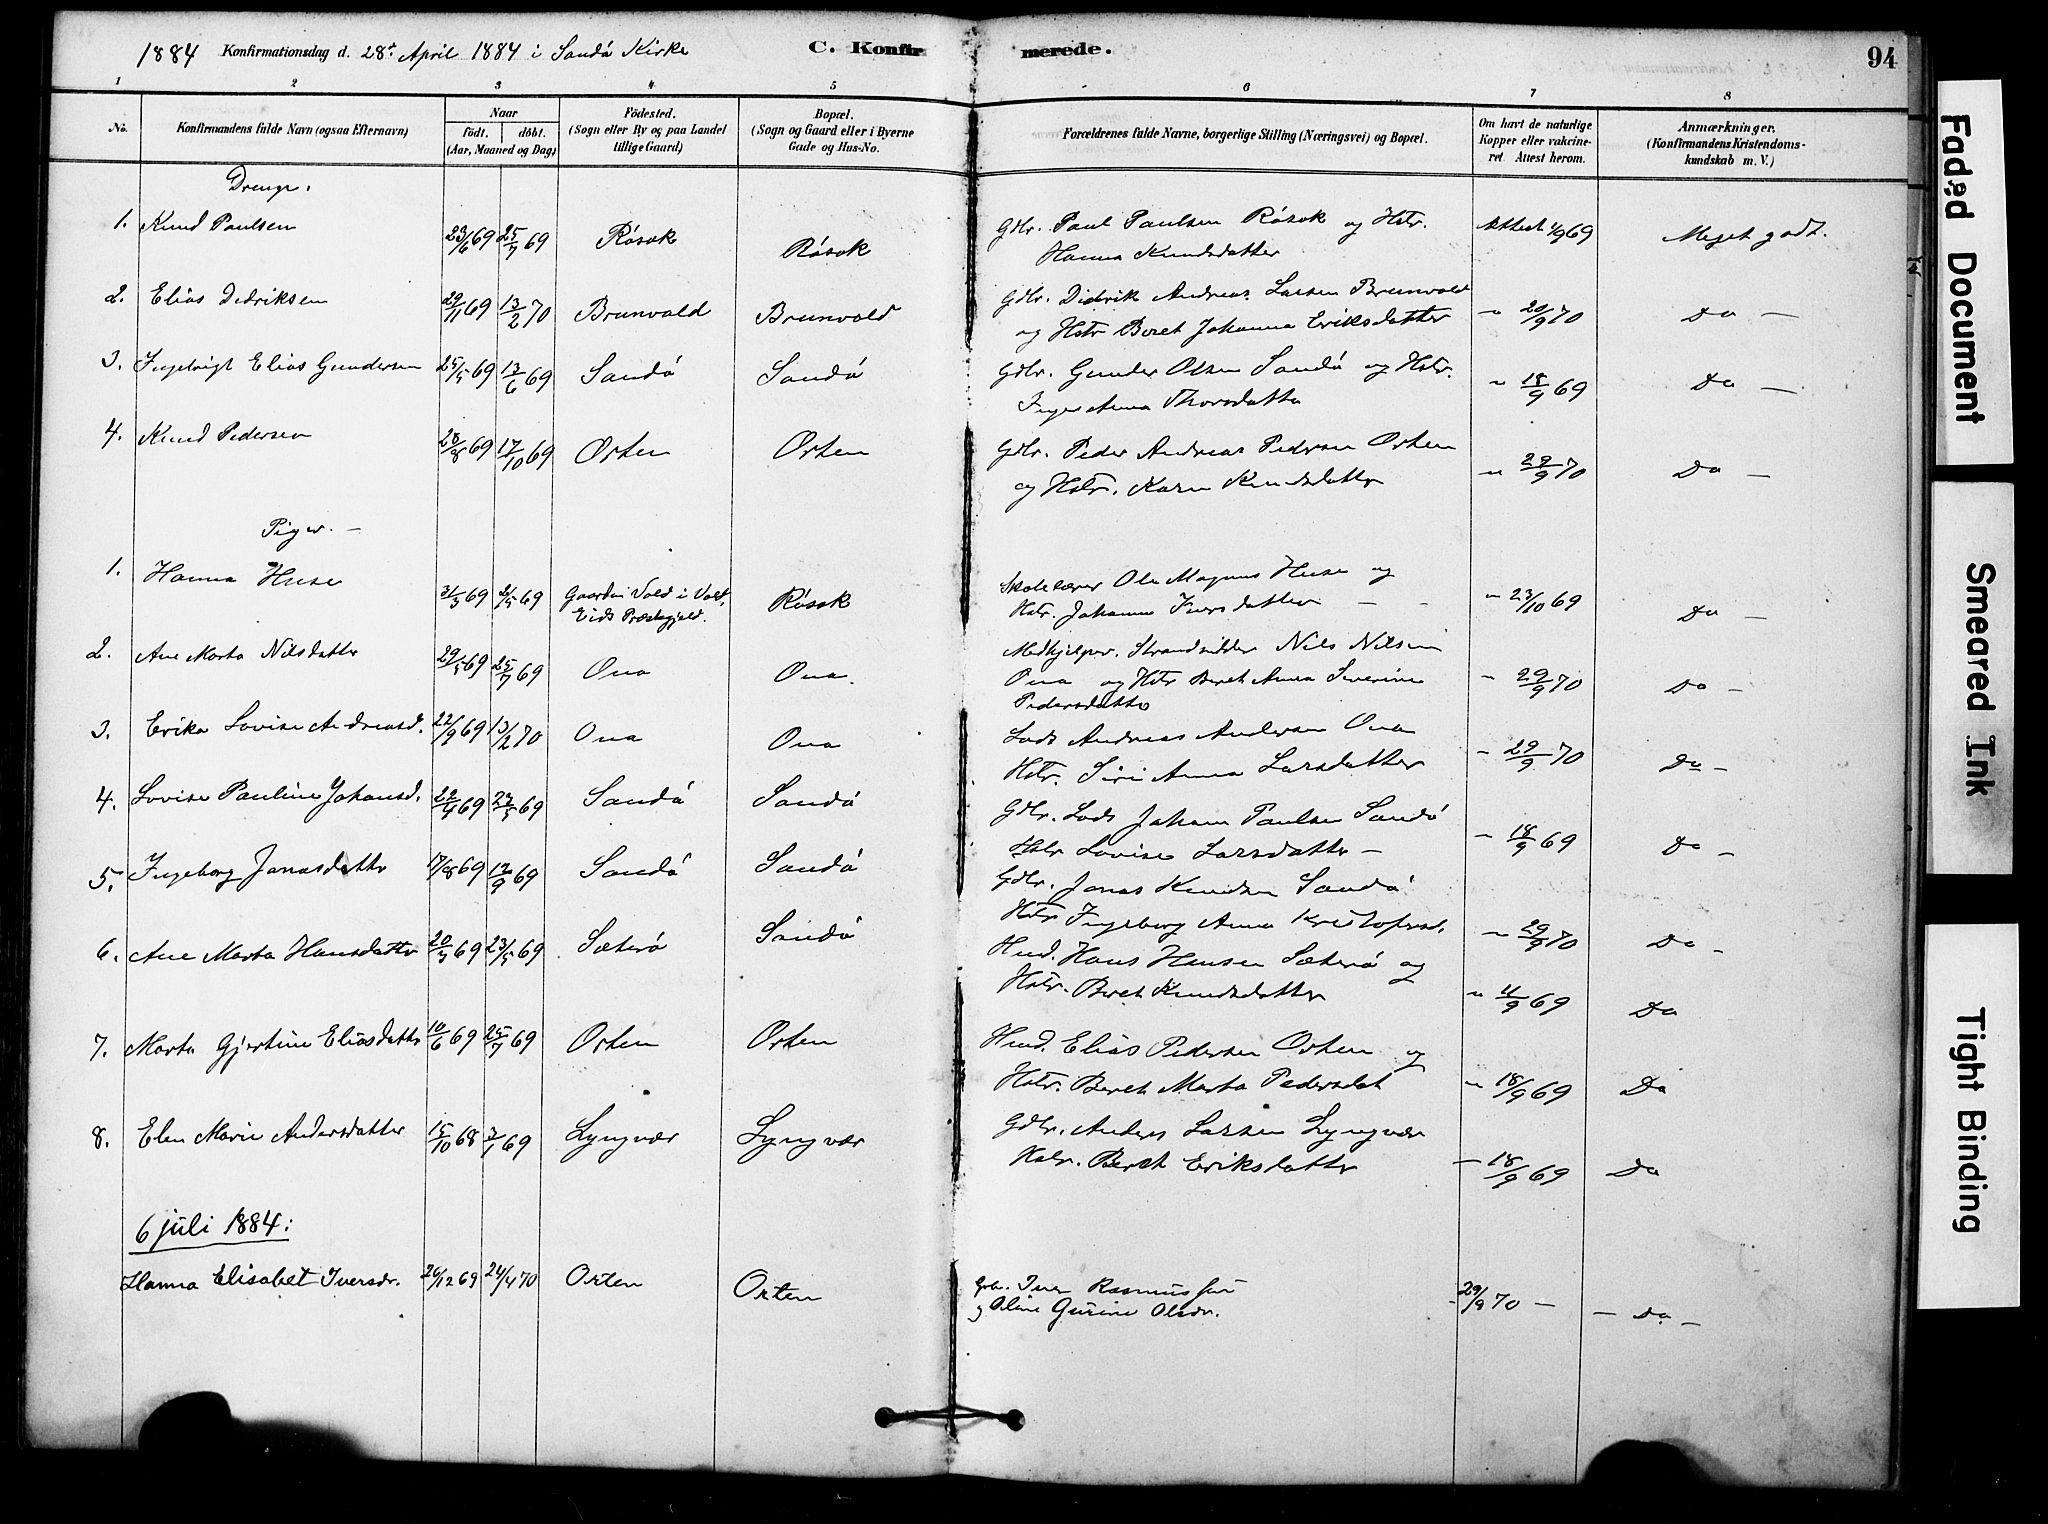 1884 Konfirmationsdag d. 28de April 1884 i Sandö Kirke C. Konfirmerede. 94
1 2 3 4 5 6 7 8
No. Konfirmandens fulde Navn (ogsaa Efternavn) Naar födt. döbt. (Aar, Maaned og Dag) Födested. (Sogn eller By og paa Landet tillige Gaard) Bopæl. (Sogn og Gaard eller i Byerne Gade og Hus-No. Forældrenes fulde Navne, borgerlige Stilling (Næringsvei) og Bopæl. Om havt de naturlige Kopper eller vakcineret. Attest herom. Anmærkninger. (Konfirmandens Kristendomskundskab m. V.)
Drenge.
1. Knud Paulsen 23/6 69 25/7 69 Rösok Rösok Gdbr. Paul Paulsen Rösok og Hstr.
Hanna Knudsdatter Attest 4/9 69 Meget godt.
2. Elias Didriksen 29/11 69 13/2 70 Brunvold Brunvold Gdbr. Didrik Andreas Larsen Brunvold
og Hstr Beret Johanna Eriksdatter " 20/9 70 Do —
3. Ingebrigt Elias Gundersen 25/5 69 13/6 69 Sandö Sandö Gdbr. Gunder Olsen Sandö og Hstr.
Inger Anna Thorsdatter " 18/9 69 Do —
4. Knud Pedersen 28/8 69 17/10 69 Orten Orten Gdbr. Peder Andreas Pedersen Orten
og Hstr. Karen Knudsdatter " 29/9 70 Do —
Piger. —
1. Hanna Huse 31/3 69 2/5 69 Gaarden Vold i Vold, Eids Præstegjeld. Rösok Skolelærer Ole Magnus Huse og
Hstr. Johanne Iversdatter — " 23/10 69 Do —
2. Ane Marta Nilsdatter 29/5 69 25/7 69 Ona Ona. Medhjelper. Strandsidder Nils Nilsen
Ona og Hstr Beret Anna Severine
Pedersdatter " 29/9 70 Do —
3. Erika Lovise Andreasd. 22/9 69 13/2 70 Ona Ona Lods Andreas Andersen Ona
Hstr. Siri Anna Larsdatter " 29/9 70 Do —
4. Lovise Pauline Johansd. 22/4 69 23/5 69 Sandö Sandö Gdbr. Lods Johan Paulsen Sandö
Hstr Lovise Larsdatter — " 18/9 69 Do —
5. Ingeborg Jonasdatter 17/8 69 12/9 69 Sandö Sandö Gdbr. Jonas Knudsen Sandö
Hstr Ingeborg Anna Kristofersd. " 29/9 70 Do —
6. Ane Marta Hansdatter 20/3 69 23/5 69 Sæterö Sandö Hmd. Hans Hansen Sæterö og
Hstr. Beret Knudsdatter " 11/9 69 Do
7. Marta Gjertine Eliasdatter 10/6 69 25/7 69 Orten Orten Hmd. Elias Pedersen Orten og
Hstr. Beret Marta Pedersdat " 18/9 69 Do
8. Elen Marie Andersdatter 15/10 68 3/1 69 Lyngvær Lyngvær Gdbr. Anders Larsen Lyngvær
Hstr. Beret Eriksdatter — 18/9 69 Do
6 juli 1884:
Hanna Elisabet Iversdr. 26/12 69 24/4 70 Orten Orten Gbr. Iver Rasmussen
og Oline Gurine Olsdr. 29/9 70 — — Do —
Faded Document
Smeared Ink
Tight Binding